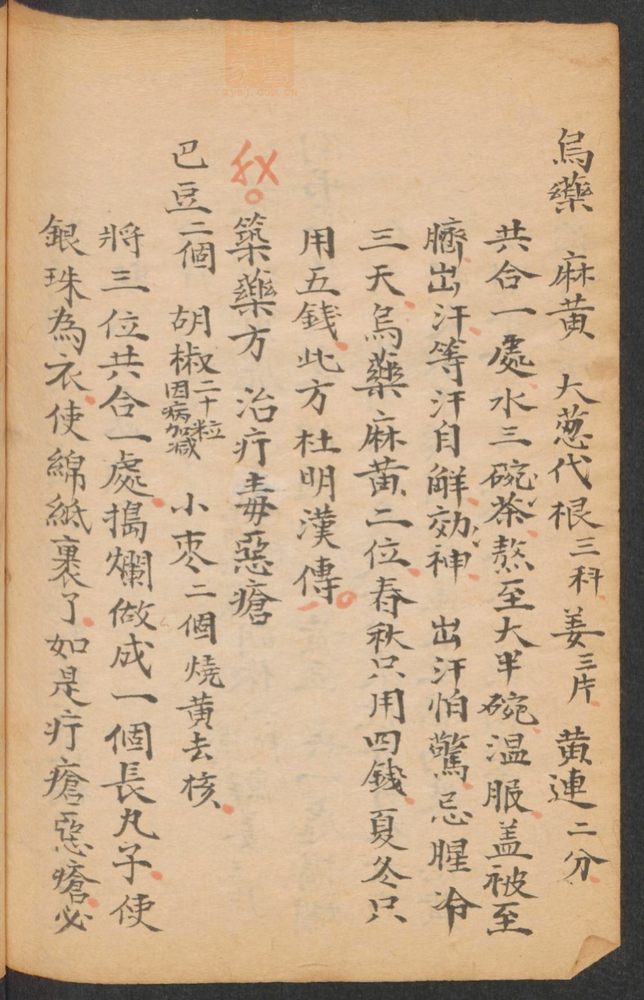 烏藥 麻黃 大葱代根三科 姜三片 黃連二分
共合一處水三碗茶熬至大半碗温服盖被至
臍出汗等汗自觧効神 出汗怕驚忌腥冷
三天烏藥麻黃二位春秋只用四錢夏冬只
用五錢此方杜明漢傳
築藥方 治疔毒惡瘡
巴豆二個 胡椒二十粒因病加减 小枣二個燒黃去核
將三位共合一處搗爛做成一個長丸子使
銀珠為衣使綿紙裹了如是疔瘡惡瘡必